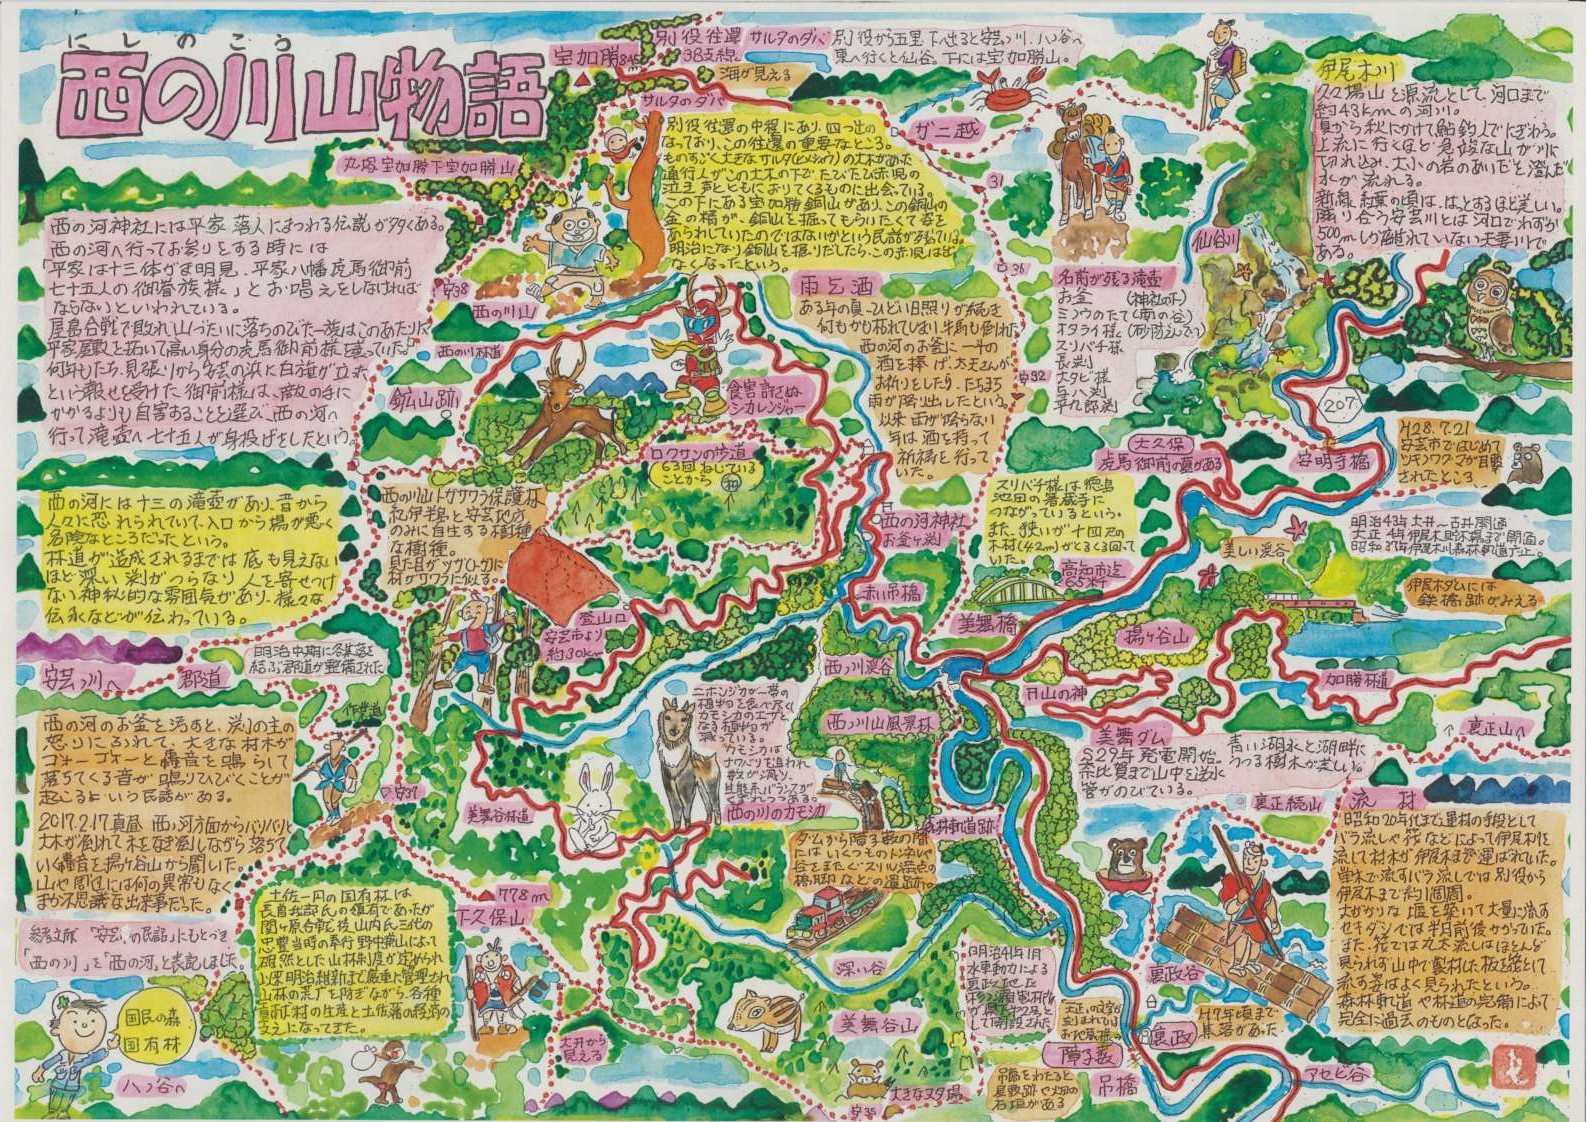 にしのこう
西の川山物語
宝加勝845
別役往還 サルタのダバ
38支線
別役から五里下へ出ると安芸川、八ノ谷へ
東へ行くと仙谷。下には宝加勝山。
海が見える
サルタのダバ
ガニ越
丸塔宝加勝下宝加勝山
別役往還の中程にあり、四つ辻の
なっており、この往還の重要なところ。
ものすごく大きなサルタ(ヒメシャラ)の大木があった
通行人がこの大木の下でたびたび赤児の
泣き声とともにおりてくるものに出会っている。
この下にある宝加勝銅山があり、この銅山の
金の精が、銅山を掘ってもらいたくて姿を
あらわしていたのではないかという民話が残っている。
明治になり銅山を掘りだしたら、この赤児は出
なくなったという。
伊尾木川
久々場山を源流として、河口まで
約43kmの河川。
夏から秋にかけて鮎釣人でにぎわう。
上流に行くほど急峻な山が川に
切れ込み、大小の岩のあいだを澄んだ
水が流れる。
新緑、紅葉の頃は、はっとするほど美しい。
隣り合う安芸川とは河口でわずか
500mしか離れていない夫妻川で
ある。
西の河神社には平家落人にまつわる伝説が多くある。
西の河へ行ってお参りをする時には
「平家は十三体がま明見、平家八幡虎馬御前
七十五人の御眷族様」とお唱えをしなければ
ならないといわれている。
屋島合戦で敗れ山づたいに落ちのびた一族はこのあたりに
平家屋敷を拓いて高い身分の虎馬御前様を護っていた。
何年もたち、見張りから安芸の浜に白旗が立った
という報せを受けた御前様は、敵の手に
かかるよりも自害することを選び、西の河へ
行って滝壺へ七十五人が身投げをしたという。
安38
西の川山
西の川林道
鉱山跡
31
36
安32
仙谷川
雨乞酒
ある年の夏、ひどい日照りが続き
何もかも枯れてしまい、牛馬も倒れた
西の河のお釜に一斗の
酒を捧げ、太夫さんが
お祈りをしたり、たちまち
雨が降り出したという。
以来雨が降らない
年は酒を持って
祈祷を行って
いた。
名前が残る滝壺
お釜 (神社の下)
ミョウのたて(南の谷)
オタライ様 (砂防えんてい)
スリバチ様
長渕
大タビ様
与八渕
平九郎渕
食害許さぬ
シカレンジャー
ロクサンの歩道
63回ねじている
ことから
207
大久保
虎馬御前の墓がある
安明寺橋
H28.7.21
安芸市ではじめて
ツキノワグマが目撃
されたところ
西の河には十三の滝壺があり、昔から
人々に恐れられていて、入口から場が悪く
危険なところだったという。
林道が造成されるまでは底も見えない
ほど深い渕がつらなり、人を寄せつけ
ない神秘的な雰囲気があり、様々な
伝承などが伝わっている。
西の川山トガサワラ保護林
紀伊半島と安芸地方
のみに自生する樹種
な樹種。
見た目がツガ(トガ)に
材がサワラに似る。
スリバチ様は徳島
池田の箸蔵寺に
つながっているという。
また、狭いが十四尺の
木材(4.2m)がとるくる回って
いた。
西の河神社
お釜ヶ渕
明治43年大井〜古井開通
昭和37年伊尾木川森林軌道廃止。
美しい渓谷
高知市迄
65粁
伊尾木ダムには
鉄橋跡がみえる
赤い吊橋
美舞橋
揚ヶ谷山
登山口
安芸市より
約30km
安芸川へ
郡道
明治中期に各集落を
結ぶ郡道が整備された
西ノ川渓谷
日山の神
加勝林道
裏正山へ
西ノ川山風景林
西の河のお釜を汚すと、渕の主の
怒りにふれて、大きな材木が
ゴォーゴォーと轟音を鳴らして
落ちてくる音が鳴りひびくことが
起こるという民話がある。
2017.2.17真昼、西ノ河方面からバリバリと
大木が倒れて木をなぎ倒しながら落ちて
いく轟音を揚ヶ谷山から聞いた。
山や周辺には何の異常もなく
まか不思議な出来事だった。
作業道
安37
美舞谷林道
ニホンジカが一帯の
植物を食べ尽くし
カモシカのエサと
なる植物が
減っている。
カモシカは
ナワバリを追われ
数が減り、
生態系バランスが
くずれつつある。
西の川のカモシカ
美舞ダム
S29年発電開始。
奈比賀まで山中を送水
管がのびている。
青い湖水と湖畔に
うつる樹木が美しい。
裏正続山
流材
昭和20年代まで運材の手段として
バラ流しや筏などによって伊尾木川を
流して材木が伊尾木まで運ばれていた。
単木で流すバラ流しでは別役から
伊尾木まで約1週間。
大がかりな堰を築いて大量に流す
セキダシでは半月前後かかっていた。
また、筏では丸太流しはほとんど
見られず山中で製材した板を筏として
流す姿はよく見られたという。
森林軌道や林道の完備によって
完全に過去のものとなった。
森林軌道跡
ダムから障子薮の間
にはいくつものトンネルや
谷をまたぐスリル満点の
橋脚などの遺跡が。
土佐一円の国有林は
長曽我部氏の領有であったが
関ヶ原合戦後、山内氏三代の
忠豊当時の奉行野中兼山によって
確然とした山林制度が定められ
以来明治維新まで厳重に管理され
山林の荒廃を防ぎながら、各種
良材の生産と土佐藩の経済の
支えになってきた。
778m
下久保山
参考文献「安芸の民話」にもとづき
「西の川」を「西の河」と表記しました。
国民の森
国有林
八ノ谷へ
大井から
見える
深い谷
美舞谷山
大きなヌタ場
安35
明治41年1月
水車動力による
裏政谷
裏政
H7年頃まで
集落があった
障子薮
吊橋
吊橋をわたると
屋敷跡や畑の
石垣がある
アセビ谷